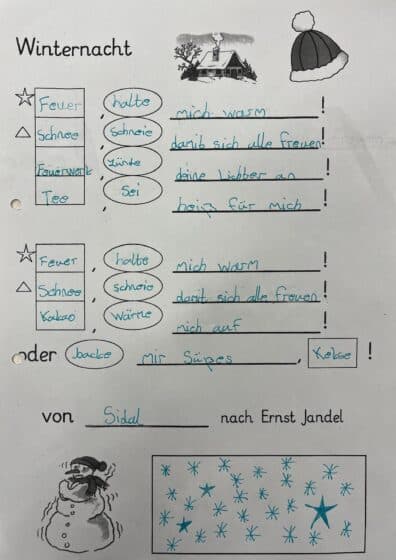 Winternacht
Feuer, halte mich warm!
Schnee, schneie damit sich alle freuen!
Feuerwerk, zünde deine Lichter an!
Tee, Sei heiß für mich!
Feuer, halte mich warm!
Schnee, schneie damit sich alle freuen!
Kakao, wärme mich auf!
oder backe mir Süßes, Kekse!
von Sidal nach Ernst Jandel